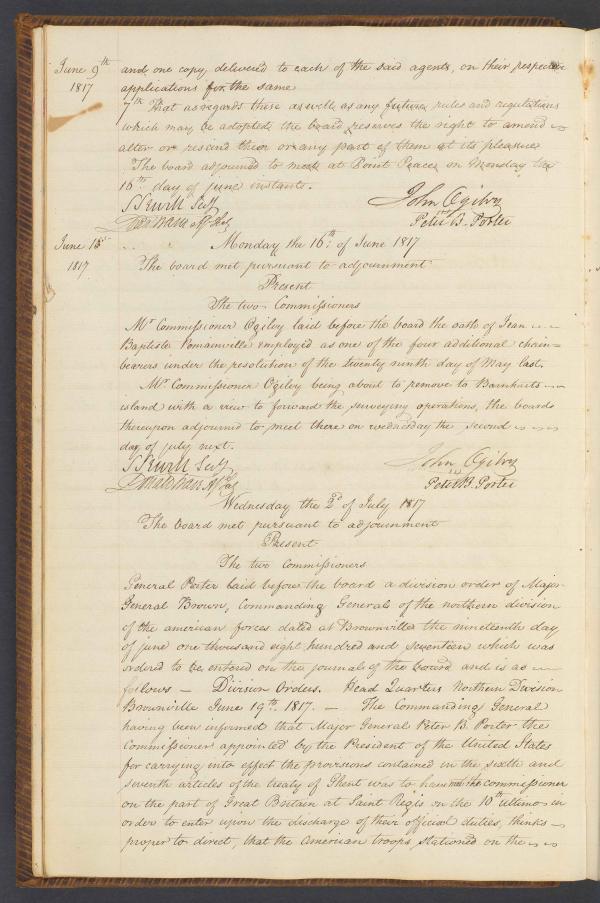 June 9th and one copy, delivered to each of the said agents, on their respective
1817 applications for the same
7th That as regards these as well as any future rules and regulations
which may be adopted, the board reserves the right to amend
alter or rescind them or any part of them at its pleasure
The board adjourned to meet at Point Peace on Monday the
16th day of June instant.
S Sewill Secy John Ogilvy
Peter B. Porter
June 16 Monday the 16th: of June 1817
1817. The board met pursuant to adjournment
Present
The two Commissioners
Mr Commissioner Ogilvy laid before the board the oath of Jean
Baptiste Romainville employed as one of the four additional chain=
bearers under the resolution of the twenty ninth day of May last.
Mr Commissioner Ogilvy being about to remove to Barnharts
island with a view to forward the surveying operations, the board
thereupon adjourned to meet there on wednesday the second
day of july next.
S Sewill Secy John Ogilvy
Peter B. Porter
Wednesday the 2d of July 1817
The board met pursuant to adjournment
Present
The two Commissioners
General Porter laid before the board a division order of Major
General Brown, Commanding General of the northern division
of the american forces dated at Brownville the nineteenth day
of june one thousand eight hundred and seventeen which was
ordered to be entered on the journal of the board and is as
follows — Division Orders. Head Quarters Northern Division
Brownville June 19th: 1817. — The Commanding General
having been informed that Major General Peter B. Porter the
Commissioner appointed by the President of the United States
for carrying into effect the provisions contained in the sixth and
seventh articles of the treaty of Ghent was to have met the commissioner
on the part of Great Britain at Saint Regis on the 10th ultimo in
order to enter upon the discharge of their official duties, thinks
proper to direct, that the American troops, stationed on the